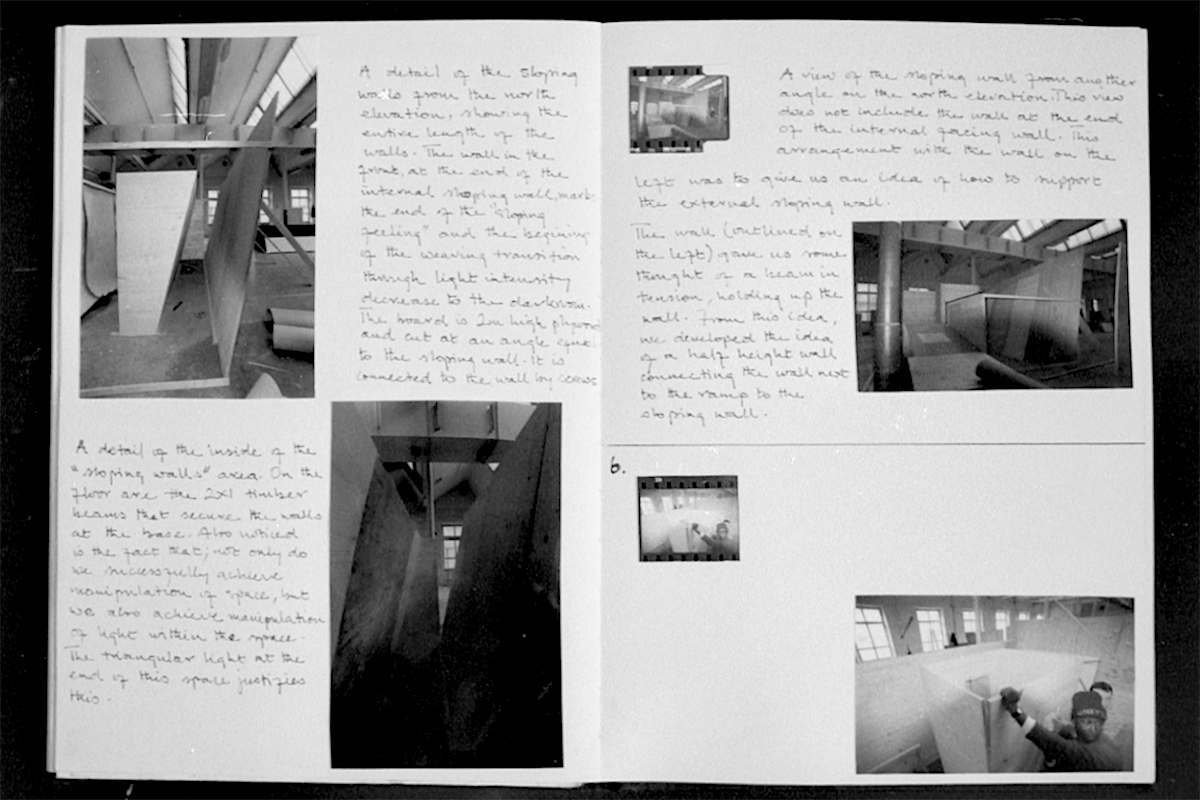 A detail of the sloping
walls from the north
elevation, showing the
entire length of the
walls. The wall in the
front, at the end of the
internal sloping wall, marks
the end of the "sloping
feeling" and the begining
of the weaving transition
through light intensity
decrease to the darkroom.
The board is 2m high plywood
and cut at an angle equal
to the sloping wall. It is
connected to the wall by screws
A detail of the inside of the
"sloping walls" area. On the
floor are the 2x1 timber
beams that secure the walls
at the base. Also noticed
is the fact that; not only do
we successfully achieve
manipulation of space, but
we also achieve manipulation
of light within the space.
The triangular light at the
end of this space justifies
this.
A view of the sloping wall from another
angle on the north elevation. This view
does not include the wall at the end
of the internal facing wall. This
arrangement with the wall on the
left was to give us an idea of how to support
the external sloping wall.
The wall (outlined on
the left) gave us some
thought of a beam in
tension, holding up the
wall. From this idea,
we developed the idea
of a half height wall
connecting the wall next
to the ramp to the
sloping wall.
6.